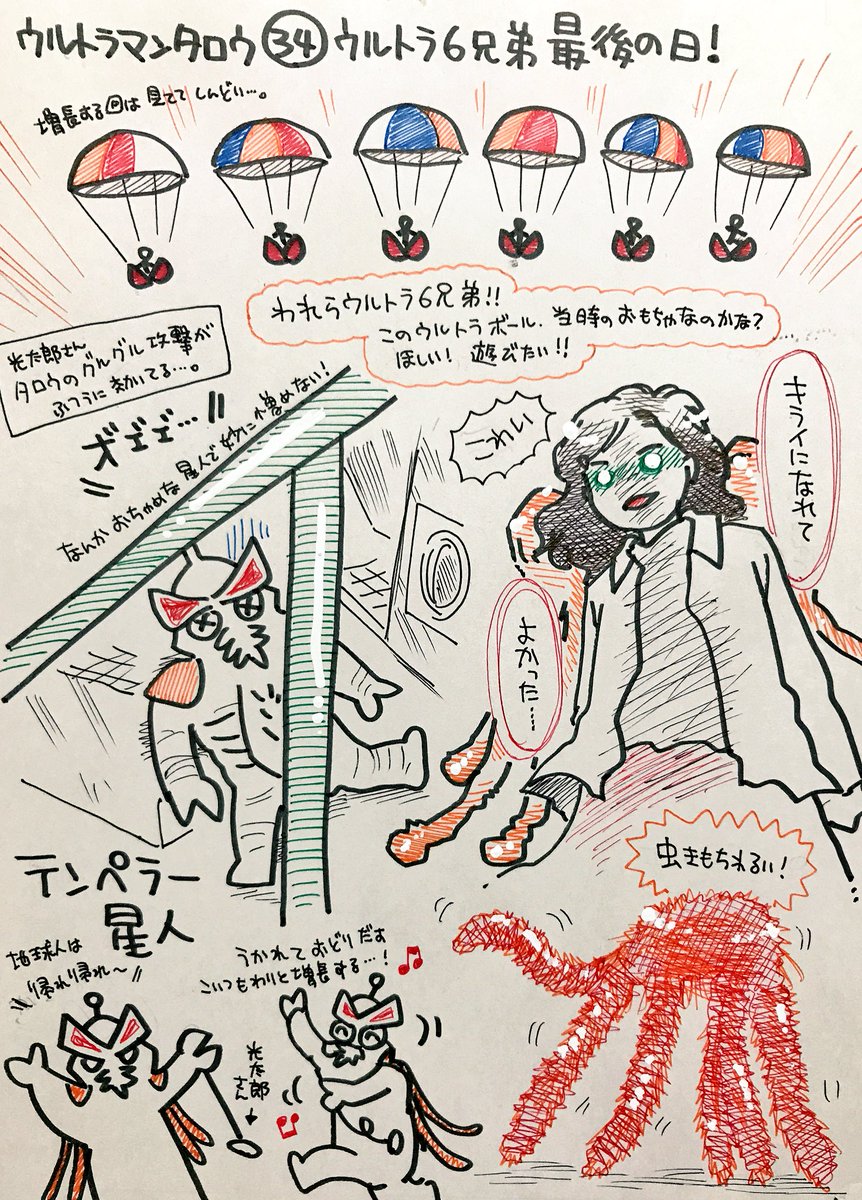 ウルトラマンタロウ㉞ウルトラ6兄弟 最後の日!
増長する回は見ててしんどい…。
われらウルトラ6兄弟!!
このウルトラボール、当時のおもちゃなのかな?
ほしい! 遊びたい!!
光太郎さん
タロウのグルグル攻撃が
ふつうに効いてる…。
ズェェェ…!!
なんかおちゃめな星人で妙に憎めない!
こわい
キライになれて
よかった…。
テンペラー
星人
虫きもちわるい!
地球人は
帰れ帰れ〜
うかれておどりだす
こいつもわりと増長する…!
光太郎
さん